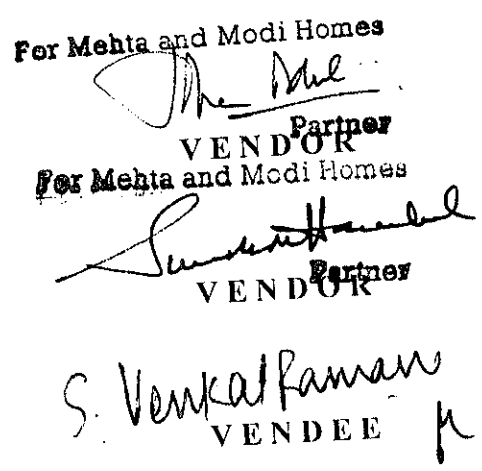 For Mehta and Modi Homes
Partner
VENDOR
For Mehta and Modi Homes
Partner
VENDOR
S. Venkat Raman
VENDEE